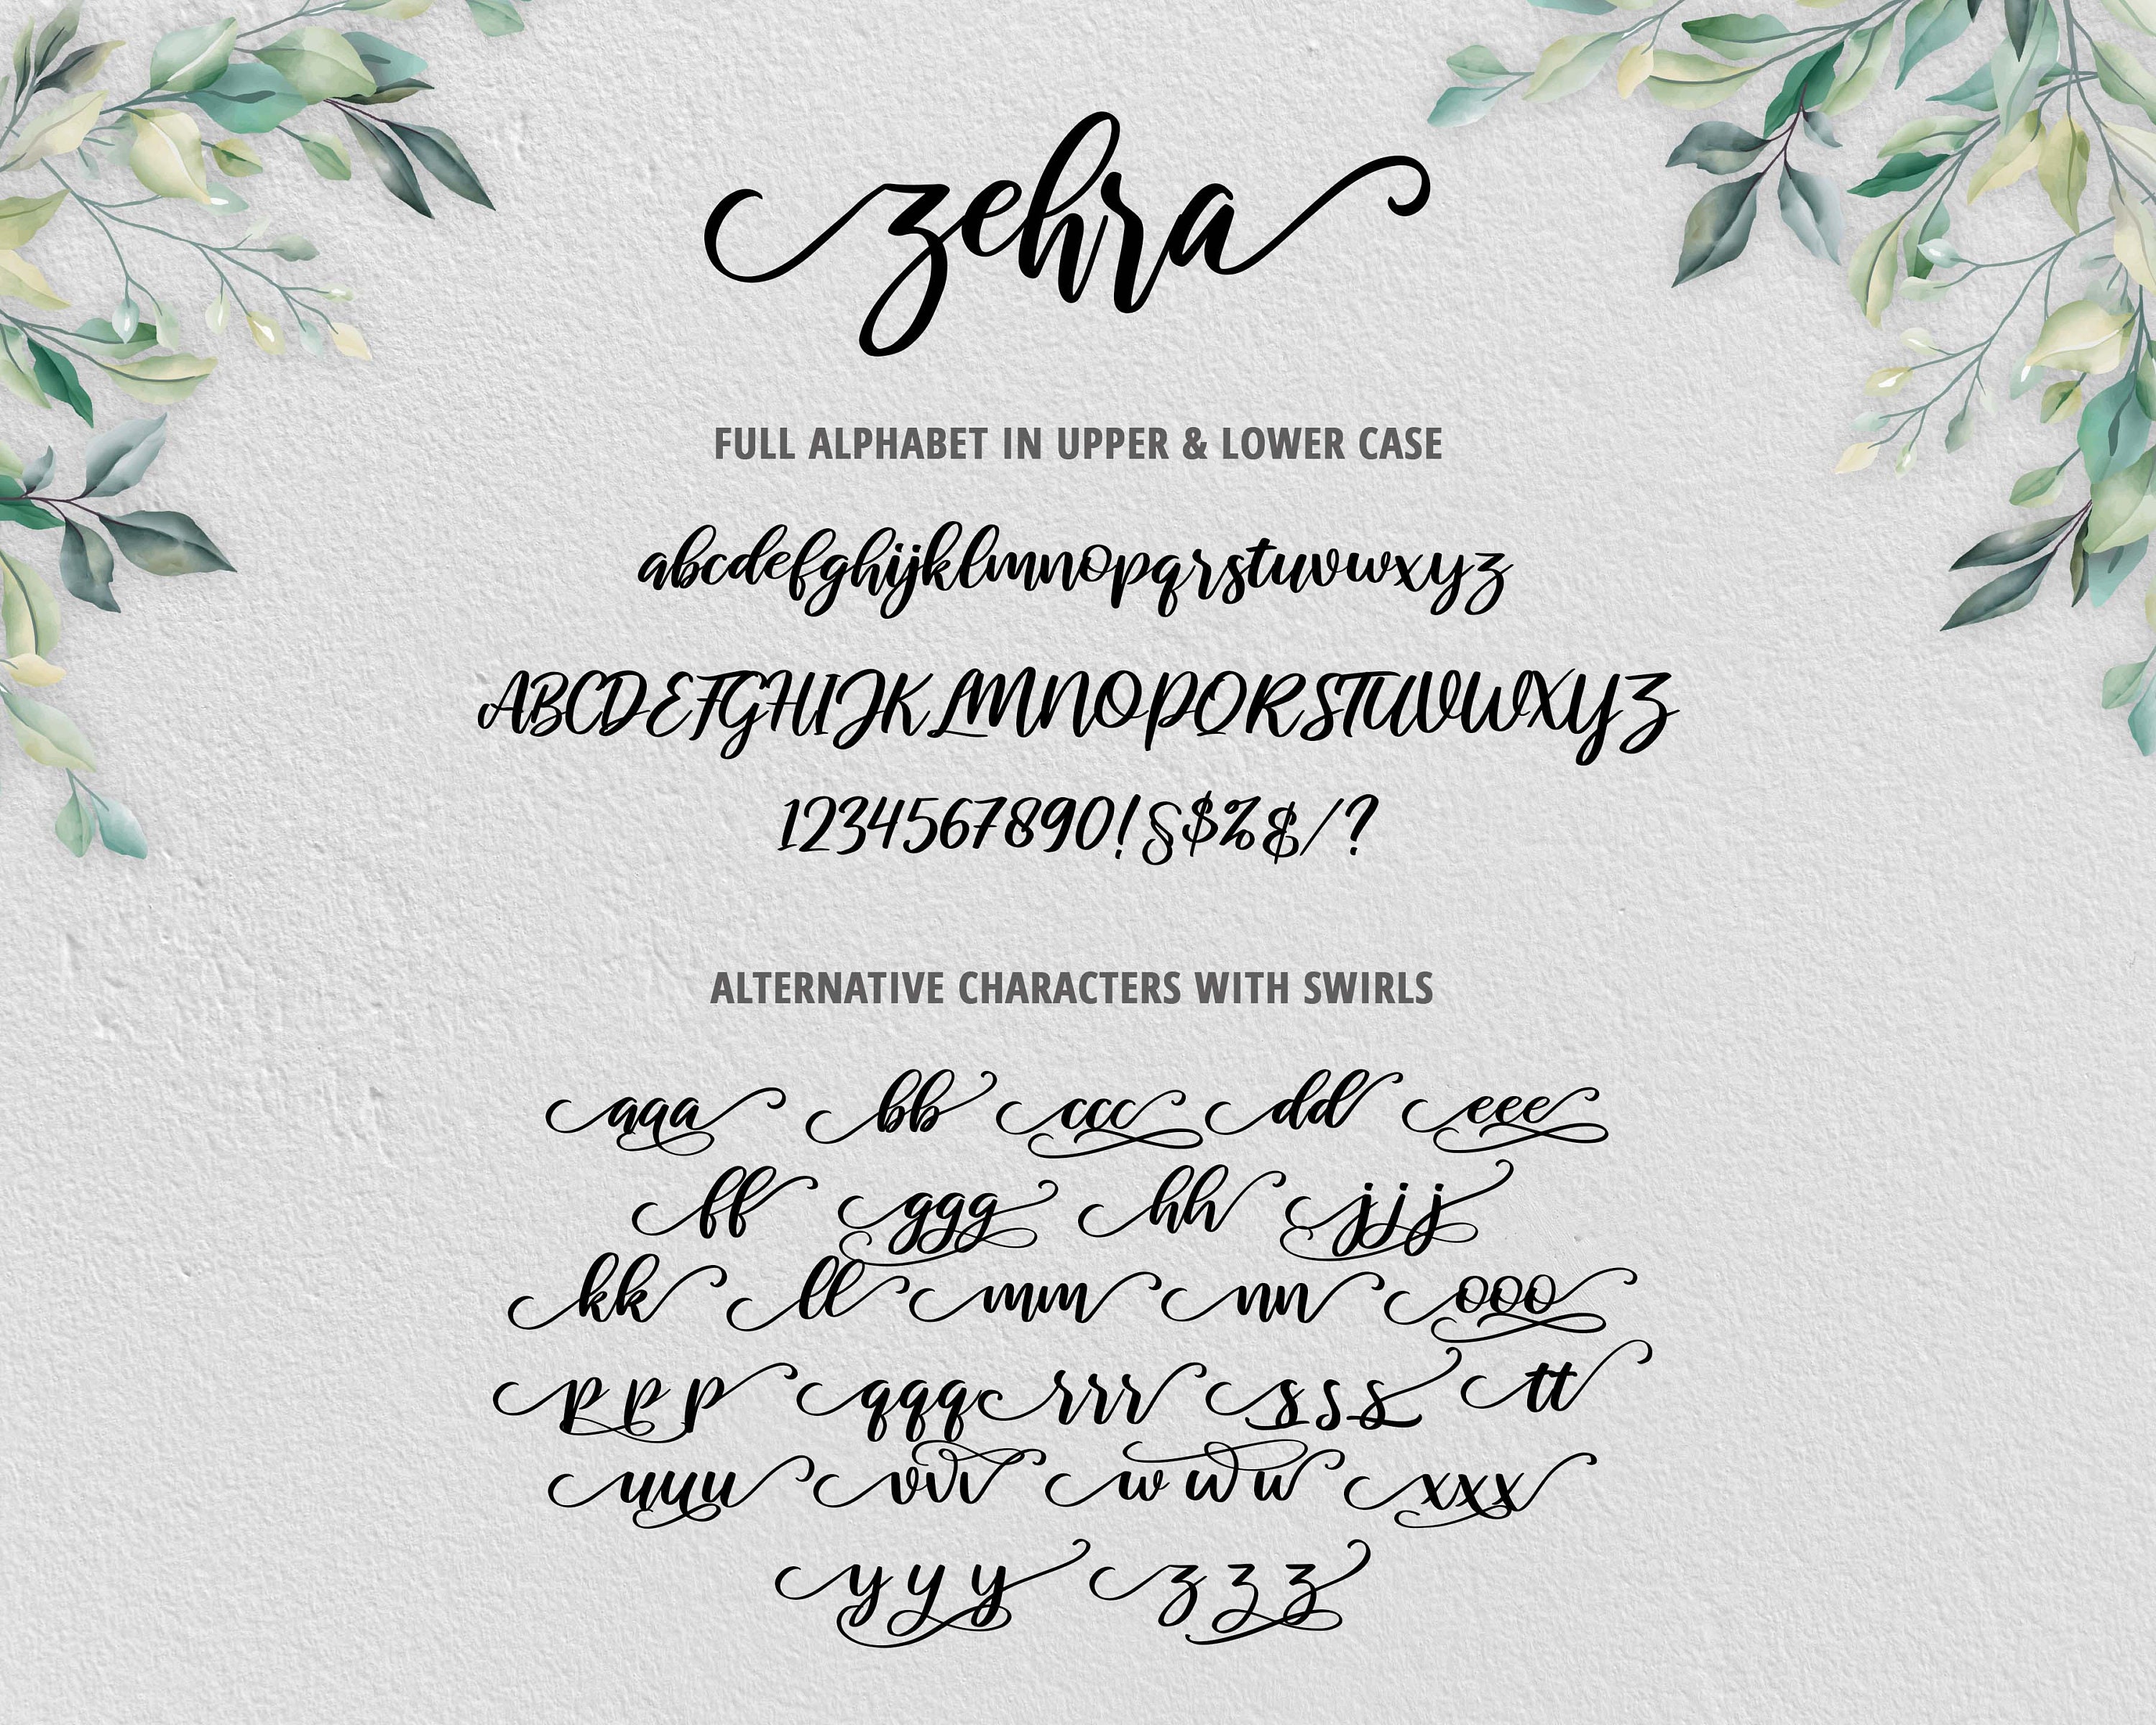 zehra
FULL ALPHABET IN UPPER & LOWER CASE
abcdefghijklmnopqrstuvwxyz
ABCDEFGHIJKLMNOPQRSTUVWXYZ
1234567890!§$%&/?
ALTERNATIVE CHARACTERS WITH SWIRLS
aaa bb ccc dd eee
ff ggg hh jjj
kk ll mm nn ooo
ppp qqq rrr sss tt
uuu vvv www xxx
yyy zzz